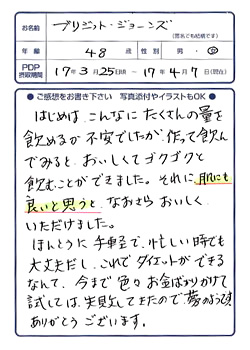 お名前 ブリジット・ジョーンズ
(匿名でも結構です)
年齢 48歳 性別 男・女
PDP 摂取期間 17年3月25日頃 〜 17年4月7日(現在)
●ご感想をお書き下さい 写真添付やイラストもOK●
はじめは、こんなにたくさんの量を
飲めるか不安でしたが、作って飲ん
でみると、おいしくてゴクゴクと
飲むことができました。それに、肌にも
良いと思うと、なおさらおいしく
いただけました。
ほんとうに手軽で、忙しい時でも
大丈夫だし、これでダイエットができる
なんて、今まで色々お金ばかりかけて
試しては、失敗してきたので、夢のようです。
ありがとうございます。